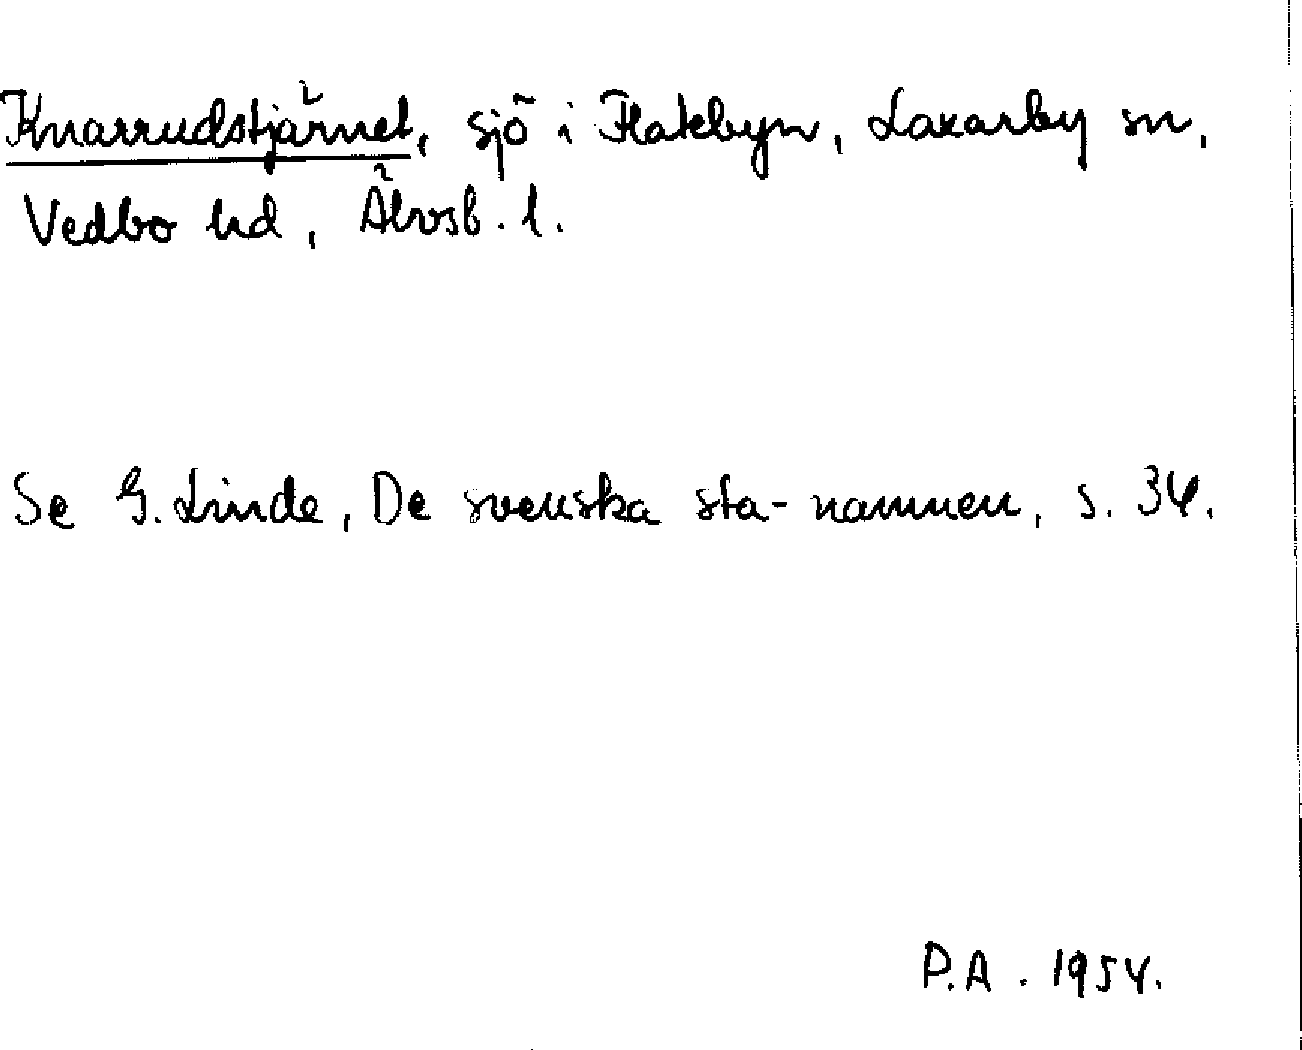 Knarrudstjärnet, sjö i Flatebyn, Laxarby sn,
Vedbo hd, Älvsb. l.
Se G. Linde, De svenska sta-namnen, s. 34.
P.A. 1954.